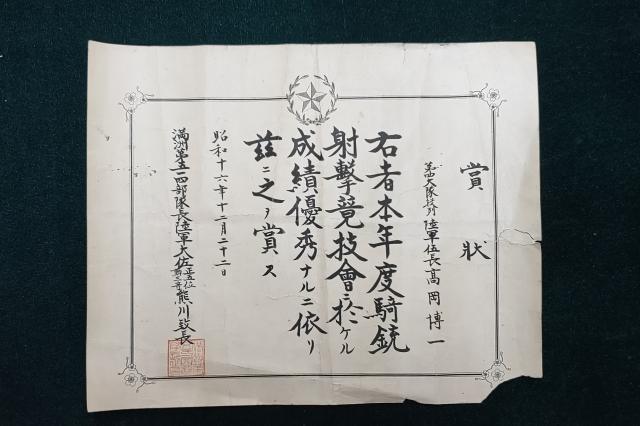 賞狀
第四大隊段列 陸軍伍長 高岡博一
右者本年度騎銃
射擊競技會ニ於ケル
成績優秀ナルニ依リ
茲ニ之ヲ賞ス
昭和十六年十二月二十二日
滿洲第五一四部隊長陸軍大佐 正五位 熊川致長